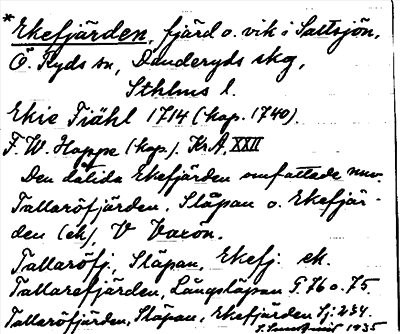 *Ekefjärden, fjärd o. vik i Saltsjön,
Ö. Ryds sn, Danderyds skg,
Sthlms l.
Ekie Fiähl 1714 (kop. 1740).
F. W. Hoppe (kop.). Kr.A. XXII
Den dåtida Ekefjärden omfattade nuv.
Tallaröfjärden, Släpan o. Ekefjär-
den (ek), V Vaxön.
Tallaröfj. Släpan, Ekefj. ek.
Tallaröfjärden, Långsläpan G. 76 o. 75.
Tallaröfjärden, Släpan, Ekefjärden Sj. 234.
1935